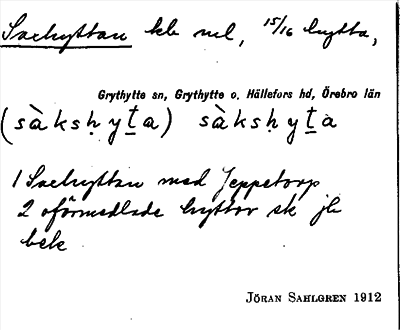 Saxhyttan kb nel, 15/16 hytta,
Grythytte sn, Grythytte o. Hällefors hd, Örebro län
(sàksḥyṯa) sàksḥyṯa
1 Saxhyttan med Jeppetorp
2 oförmedlade hyttor sk jb
bek
JÖRAN SAHLGREN 1912